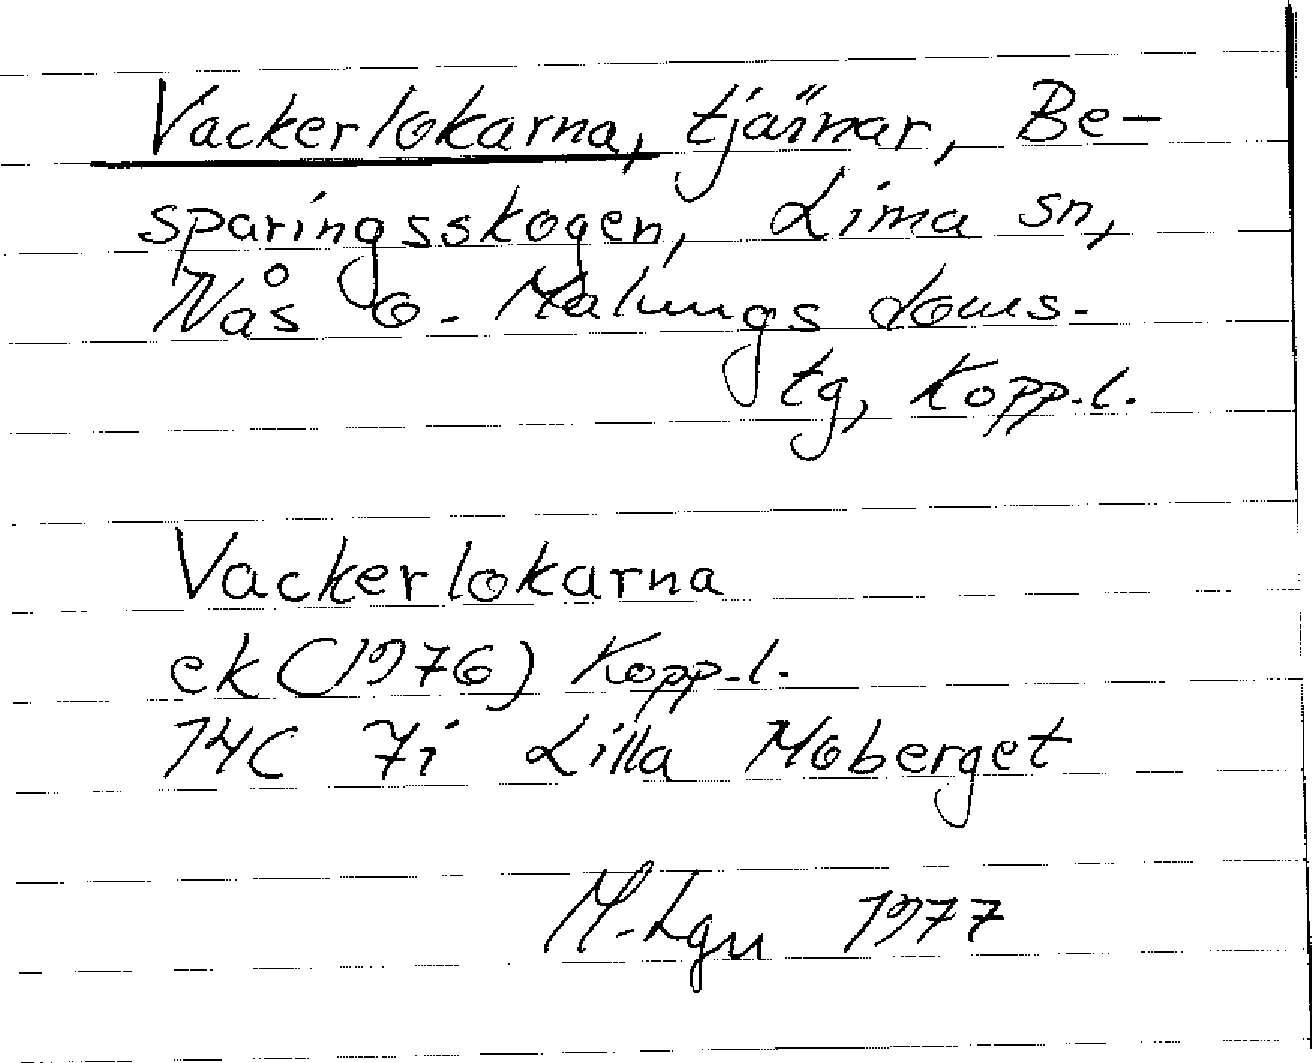 Vackerlokarna, tjärnar, Be-
sparingsskogen, Lima sn,
Nås o. Malungs doms-
tg, Kopp.l.
Vackerlokarna
ek (1976) Kopp.l.
14C 7i Lilla Moberget
M-Lgn 1977